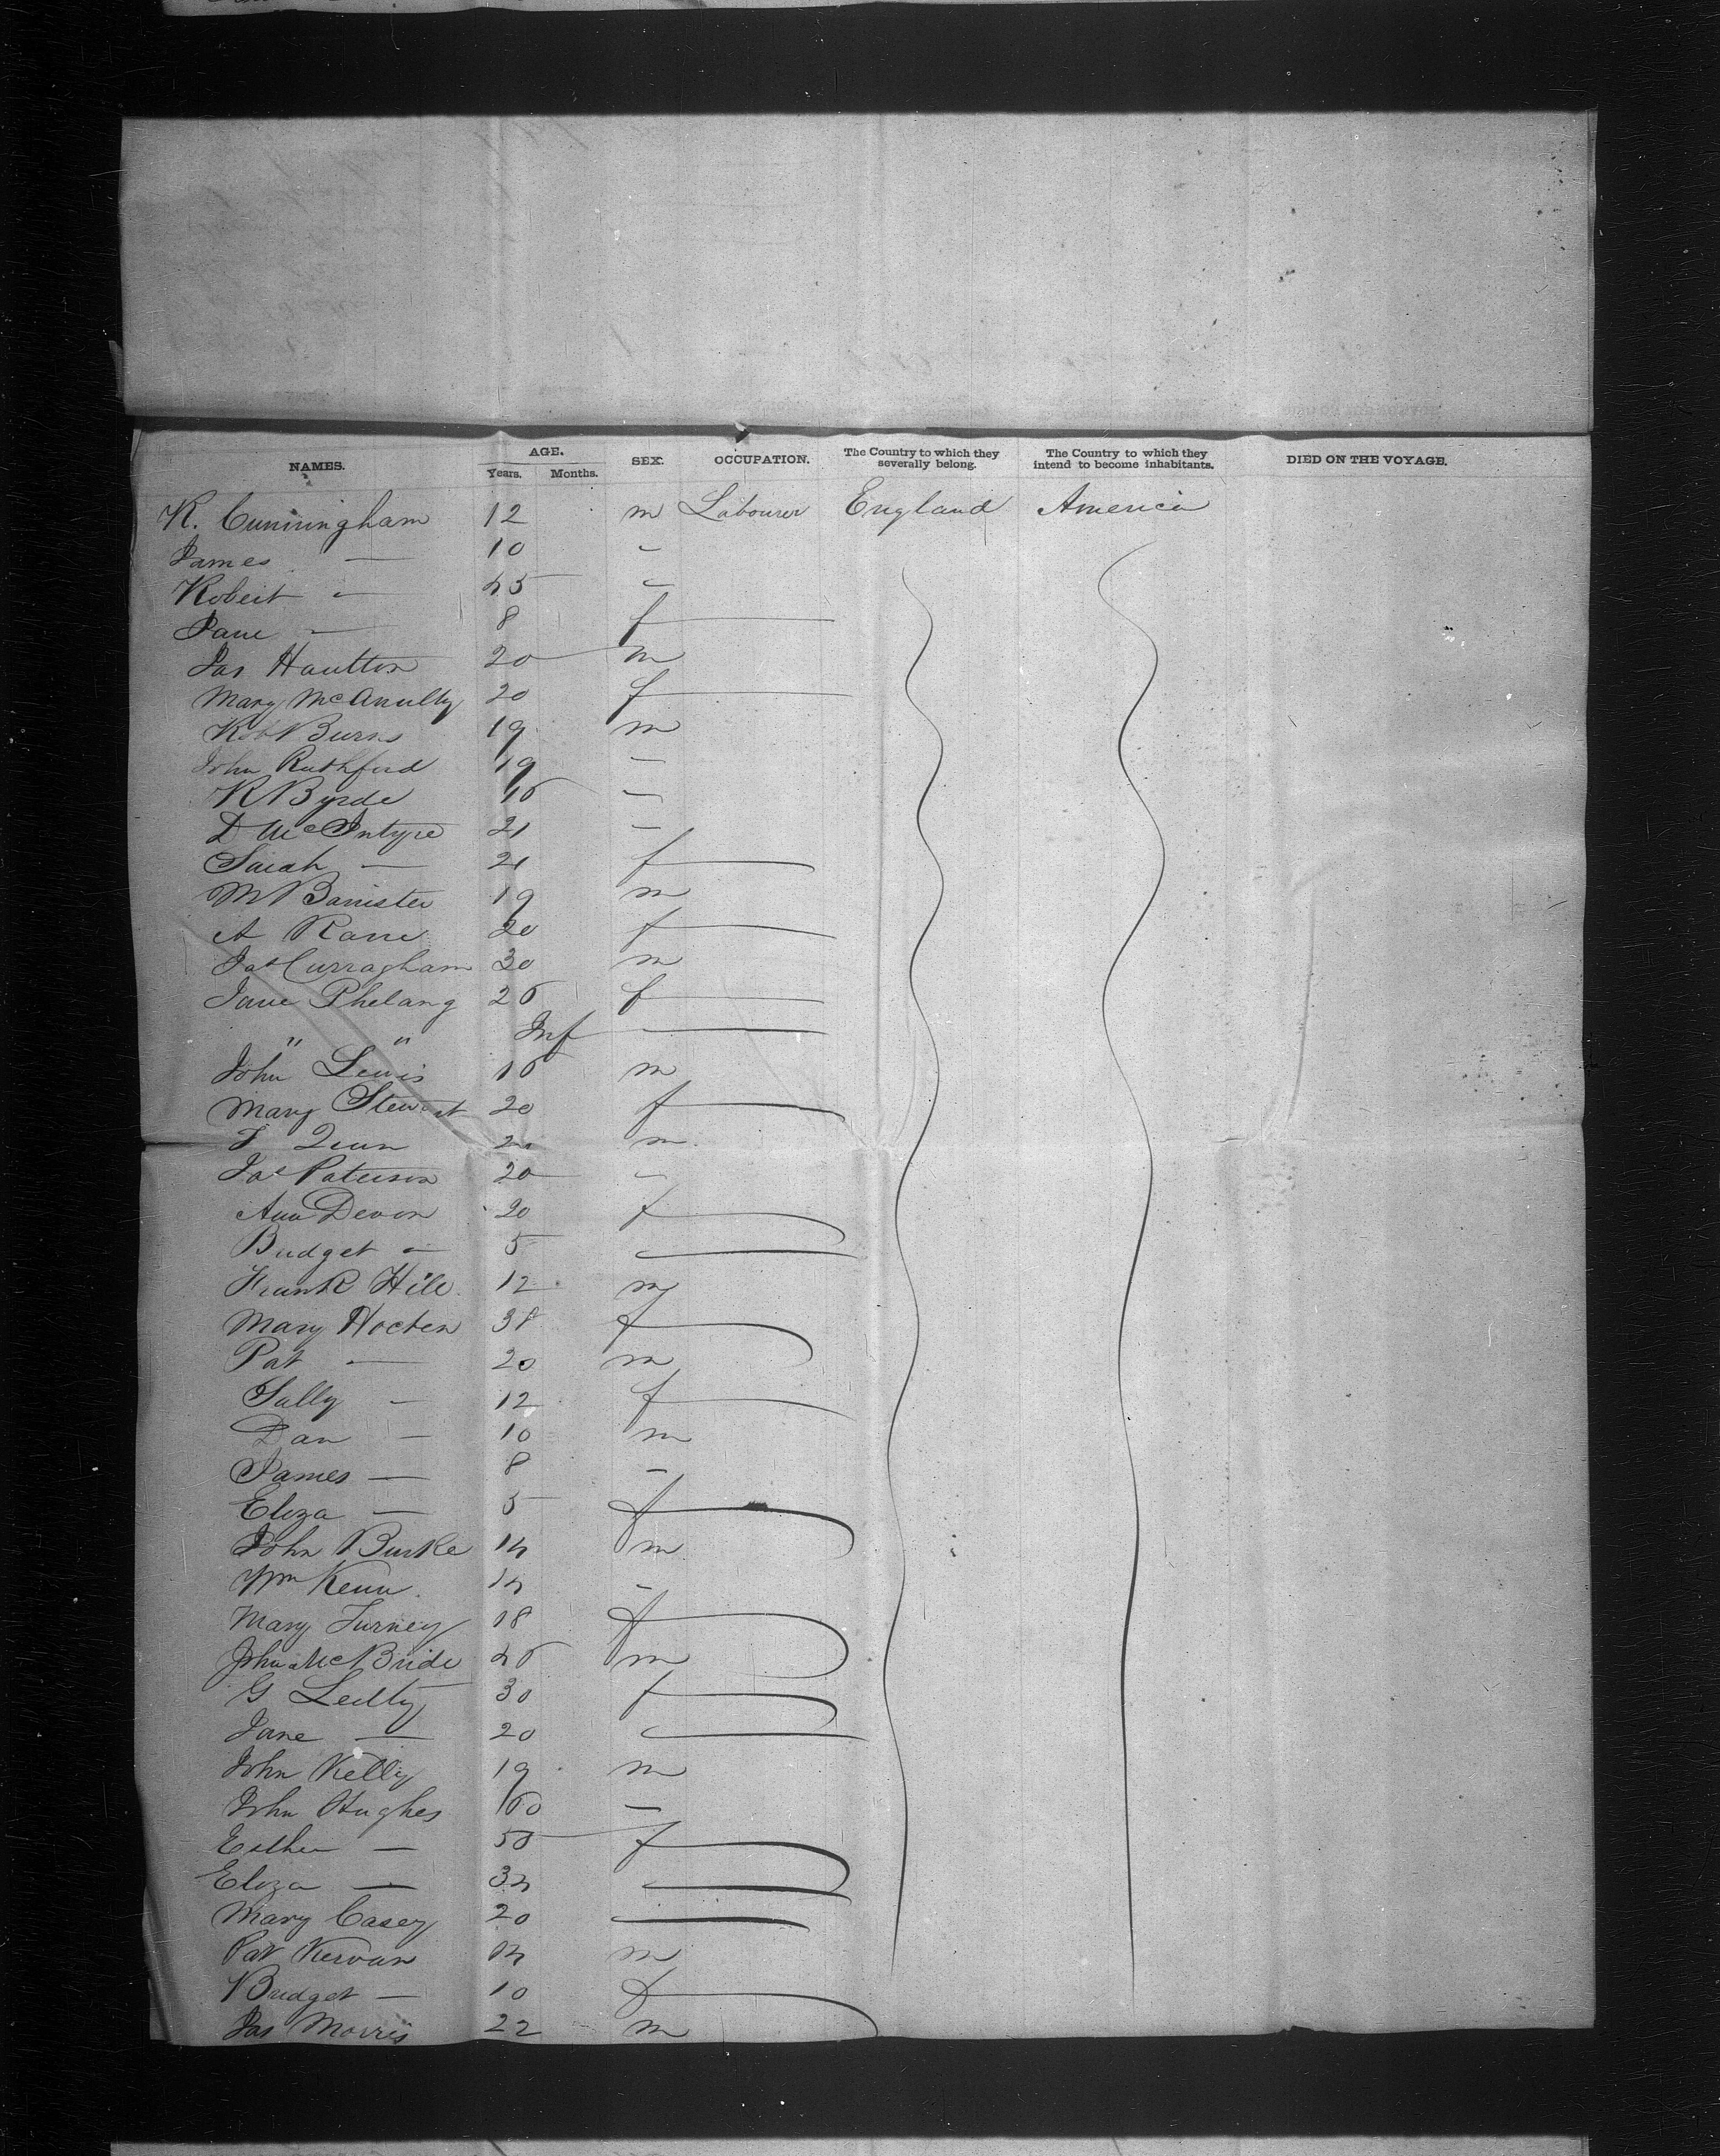 NAMES. AGE. Years. Months. SEX. OCCUPATION. The Country to which they severally belong. The Country to which they intend to become inhabitants. DIED ON THE VOYAGE.
R. Cunningham 12 m Labourer England America
James — 10 –
Robert – 45 –
Jane — 8 f
Jas 20 m
Mary McAnulty 20 f
Rob Burns 19 m
John Ruthford 19 –
R Byrde 16 –
D McIntyre 21 –
Sarah — 21 f
M Banister 19 m
A Kane 20 f
Jas Curragham 30 m
Jane Phelang 26 f
" " Inf
John Lewis 16 m
Mary Stewart 20 f
Quin m
Jas Paterson 20 –
Ann Devon 20 f
Bridget – 5
Frank Hill 12 m
Mary Hocten 38 f
Pat — 20 m
Sally – 12 f
Dan – 10 m
James — 8 –
Eliza — 5 f
John Burke 14 m
Wm Kenn 14 –
Mary Turney 18 f
John McBride 46 m
G 30 f
Jane — 20
John Kelly 19 m
John Hughes 60 –
Esther — 50 f
Eliza — 34
Mary Casey 20
Pat Kervan 14 m
Bridget — 10 f
Jas Morris 22 m